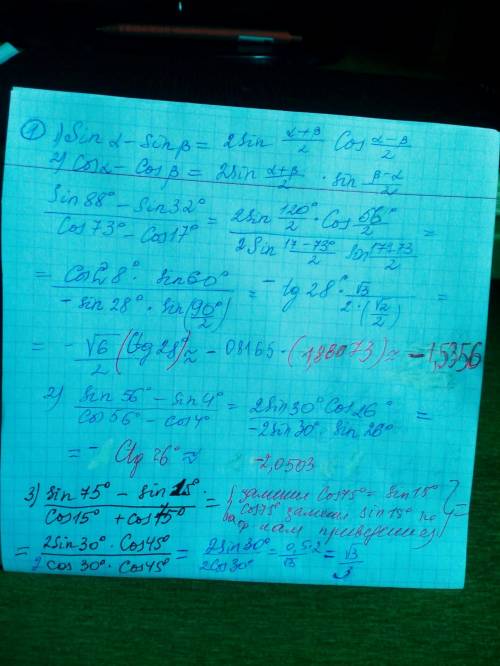 ① 1) Sin α - Sin β = 2 Sin (α+β)/2 Cos (α-β)/2
2) Cos α - Cos β = 2 sin (α+β)/2 · sin (β-α)/2
(Sin 88° - Sin 32°)/(Cos 73° - Cos 17°) = (2 Sin 120°/2 · Cos 56°/2)/(2 Sin (17-73°)/2 Sin (17+73)/2) =
= (Cos 28° · sin 60°)/(- sin 28° · sin (90°/2)) = - tg 28° · √3/(2·(√2/2)) =
= - √6/2 (Ctg 28°) ≈ - 0,8165 · (1,88073) ≈ -1,5356
2) (sin 56° - sin 4°)/(cos 56° - cos 4°) = (2 sin 30° Cos 26°)/(-2 sin 30° · sin 26°) =
= - Ctg 26° ≈ -2,0503
3) (sin 75° - sin 15°)/(Cos 15° + cos 75°) = { заменим Cos 75° = Sin 15°
cos 75° заменим Sin 15° по
ф-лам приведения } =
= (2 sin 30° · Cos 45°)/(2 cos 30° · Cos 45°) = (2 sin 30°)/(2 Cos 30°) = (0,5·2)/√3 = √3/3